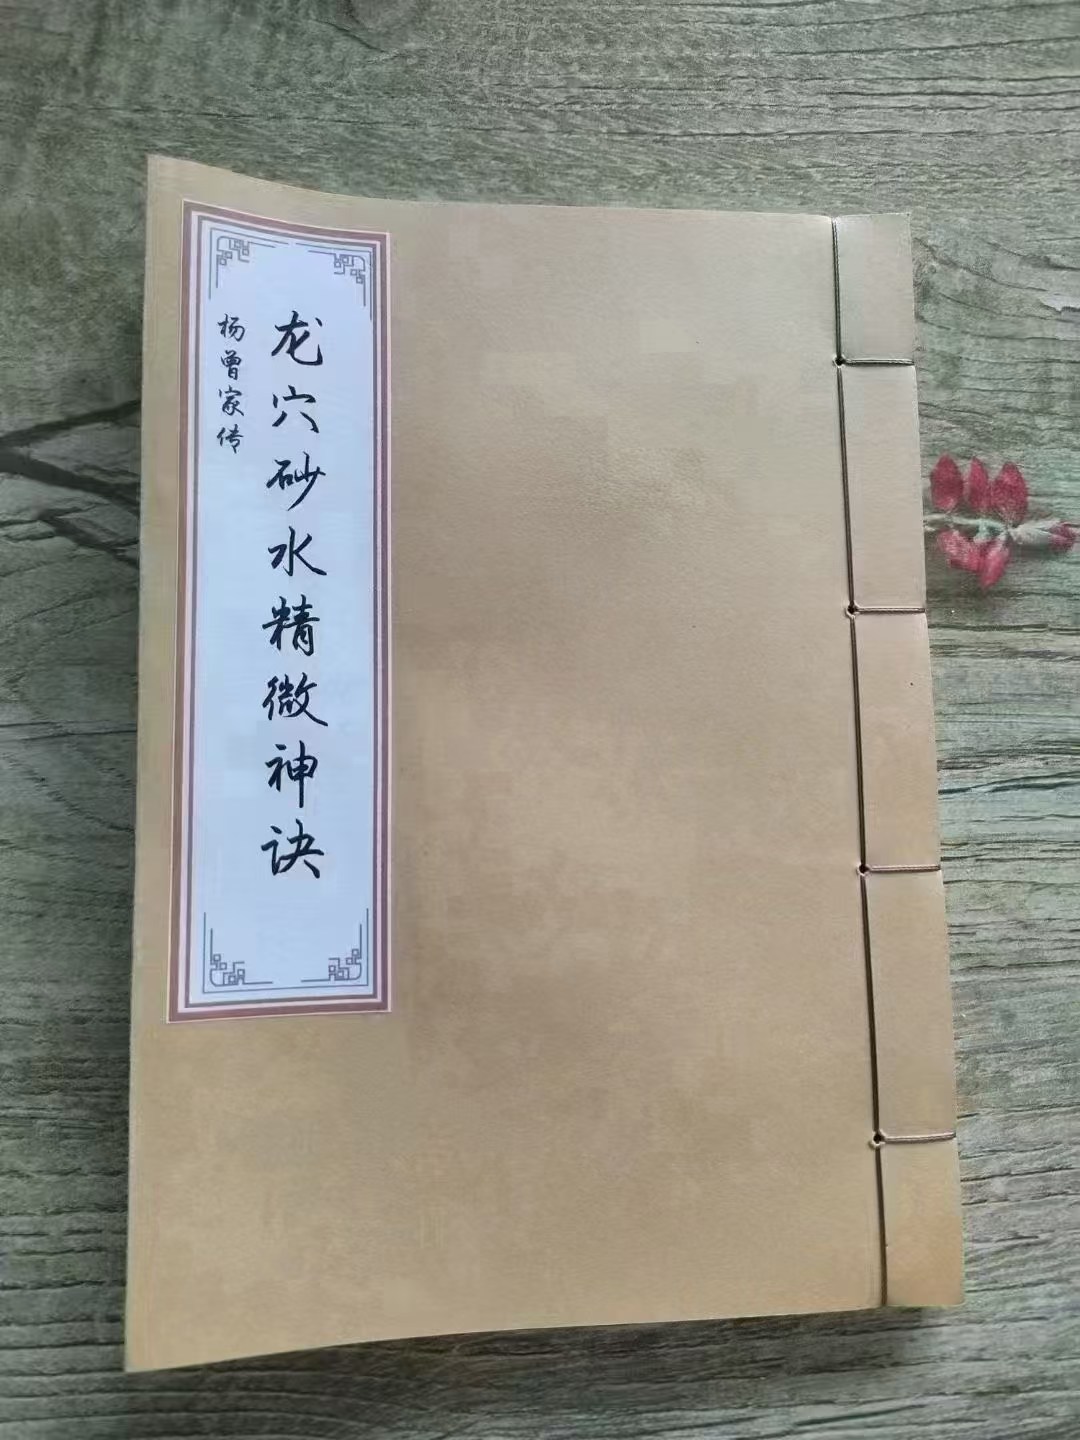 龙穴砂水精微神诀
杨曾家传